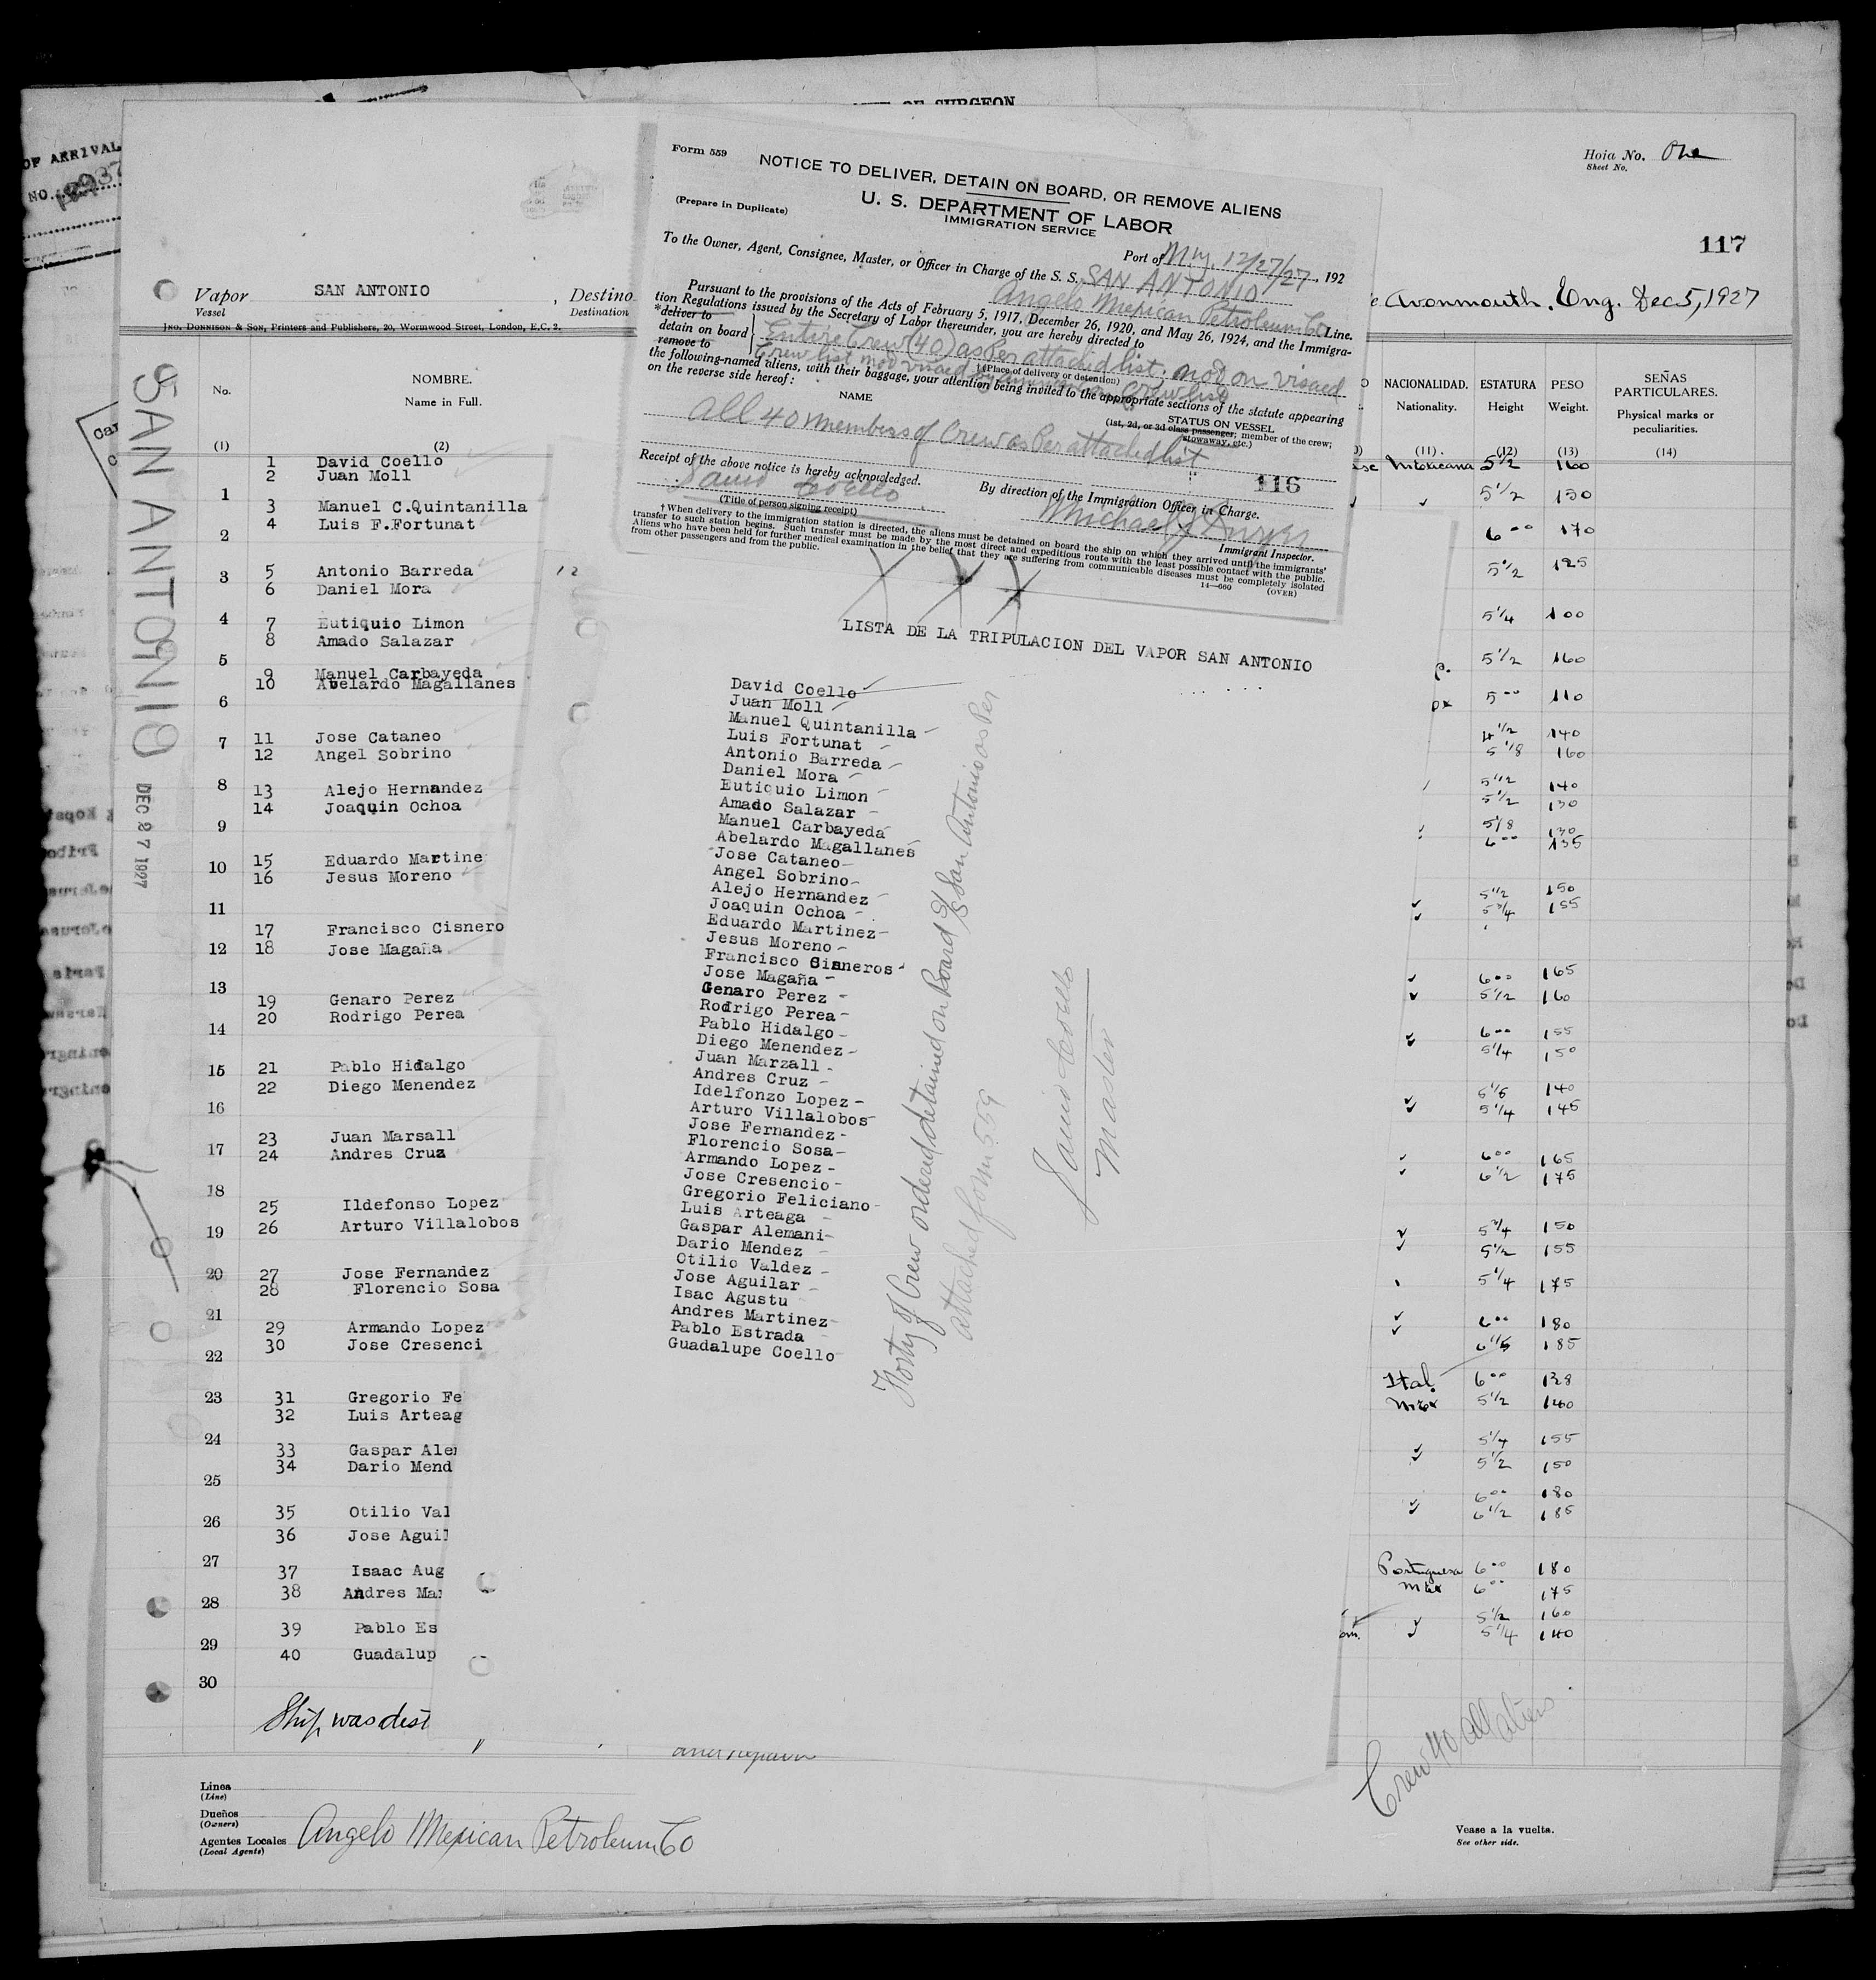 OF SURGEON
OF ARRIVAL
NO.
Hoia No. One
Sheet No.
117
Vapor SAN ANTONIO , Destino
Vessel Destination
Avonmouth. Eng. Dec 5, 1927
JNO. DONNISON & SON, Printers and Publishers, 20, Wormwood Street, London, E.C. 2.
SAN ANTONIO
DEC 27 1927
Form 559
NOTICE TO DELIVER, DETAIN ON BOARD, OR REMOVE ALIENS
(Prepare in Duplicate)
U. S. DEPARTMENT OF LABOR
IMMIGRATION SERVICE
Port of N.Y. 12/27/27, 192
To the Owner, Agent, Consignee, Master, or Officer in Charge of the S. S. SAN ANTONIO
Angelo Mexican Petroleum Co Line.
Pursuant to the provisions of the Acts of February 5, 1917, December 26, 1920, and May 26, 1924, and the Immigra-
tion Regulations issued by the Secretary of Labor thereunder, you are hereby directed to
*deliver to
detain on board
remove to
Entire Crew (40) as Per attached list, not on visaed
Crew list
(Place of delivery or detention)
the following-named aliens, with their baggage, your attention being invited to the appropriate sections of the statute appearing
on the reverse side hereof:
NAME
STATUS ON VESSEL
(1st, 2d, or 3d class passenger; member of the crew;
stowaway, etc.)
all 40 members of Crew as Per attached list
116
Receipt of the above notice is hereby acknowledged.
David Coello
(Title of person signing receipt)
By direction of the Immigration Officer in Charge.
Michael J
Immigrant Inspector.
† When delivery to the immigration station is directed, the aliens must be detained on board the ship on which they arrived until the immigrants'
transfer to such station begins. Such transfer must be made by the most direct and expeditious route with the least possible contact with the public.
Aliens who have been held for further medical examination in the belief that they are suffering from communicable diseases must be completely isolated
from other passengers and from the public.
14—660 (OVER)
No.
NOMBRE.
Name in Full.
(1) (2)
1 David Coello
2 Juan Moll
1
3 Manuel C.Quintanilla
4 Luis F.Fortunat
2
5 Antonio Barreda
3
6 Daniel Mora
4
7 Eutiquio Limon
8 Amado Salazar
5
9 Manuel Carbayeda
10 Abelardo Magallanes
6
7
11 Jose Cataneo
12 Angel Sobrino
8
13 Alejo Hernandez
14 Joaquin Ochoa
9
15 Eduardo Martine
10
16 Jesus Moreno
11
17 Francisco Cisnero
12
18 Jose Magaña
13
19 Genaro Perez
20 Rodrigo Perea
14
21 Pablo Hidalgo
15
22 Diego Menendez
16
23 Juan Marsall
17
24 Andres Cruz
18
25 Ildefonso Lopez
26 Arturo Villalobos
19
20
27 Jose Fernandez
28 Florencio Sosa
21
29 Armando Lopez
30 Jose Cresenci
22
23
31 Gregorio Fe
32 Luis Arteag
24
33 Gaspar Ale
34 Dario Mend
25
35 Otilio Val
26
36 Jose Agui
27
37 Isaac Aug
38 Andres Ma
28
39 Pablo Es
29
40 Guadalup
30
Ship was dest
and repairs
LISTA DE LA TRIPULACION DEL VAPOR SAN ANTONIO
David Coello
Juan Moll
Manuel Quintanilla
Luis Fortunat
Antonio Barreda
Daniel Mora
Eutiquio Limon
Amado Salazar
Manuel Carbayeda
Abelardo Magallanes
Jose Cataneo
Angel Sobrino
Alejo Hernandez
Joaquin Ochoa
Eduardo Martinez
Jesus Moreno
Francisco Cisneros
Jose Magaña
Genaro Perez
Rodrigo Perea
Pablo Hidalgo
Diego Menendez
Juan Marzall
Andres Cruz
Idelfonzo Lopez
Arturo Villalobos
Jose Fernandez
Florencio Sosa
Armando Lopez
Jose Cresencio
Gregorio Feliciano
Luis Arteaga
Gaspar Alemani
Dario Mendez
Otilio Valdez
Jose Aguilar
Isac Agustu
Andres Martinez
Pablo Estrada
Guadalupe Coello
Forty of Crew ordered detained on Board S/S San Antonio as Per
attached form 559
David Coello
Master
NACIONALIDAD. ESTATURA PESO SEÑAS PARTICULARES.
Nationality. Height Weight. Physical marks or peculiarities.
(11) (12) (13) (14)
Mexicana 5 1/2 160
5 1/2 130
6 00 170
5 1/2 125
5 1/4 100
5 1/2 160
5 00 110
4 1/2 140
5 1/8 160
5 1/2 140
5 1/2 130
5 1/8 130
6 00 135
5 1/2 150
5 3/4 155
6 00 165
5 1/2 160
6 00 155
5 1/4 150
5 1/6 140
5 1/4 145
6 00 165
6 1/2 175
5 3/4 150
5 1/2 155
5 1/4 175
6 00 180
185
Ital. 6 00 128
Mex 5 1/2 140
5 1/4 155
5 1/2 150
6 00 180
6 1/2 185
Portuguesa 6 00 180
Mex 6 00 175
5 1/2 160
5 1/4 140
Crew 40 all aliens
Linea
(Line)
Dueños
(Owners)
Agentes Locales Angelo Mexican Petroleum Co
(Local Agents)
Vease a la vuelta.
See other side.